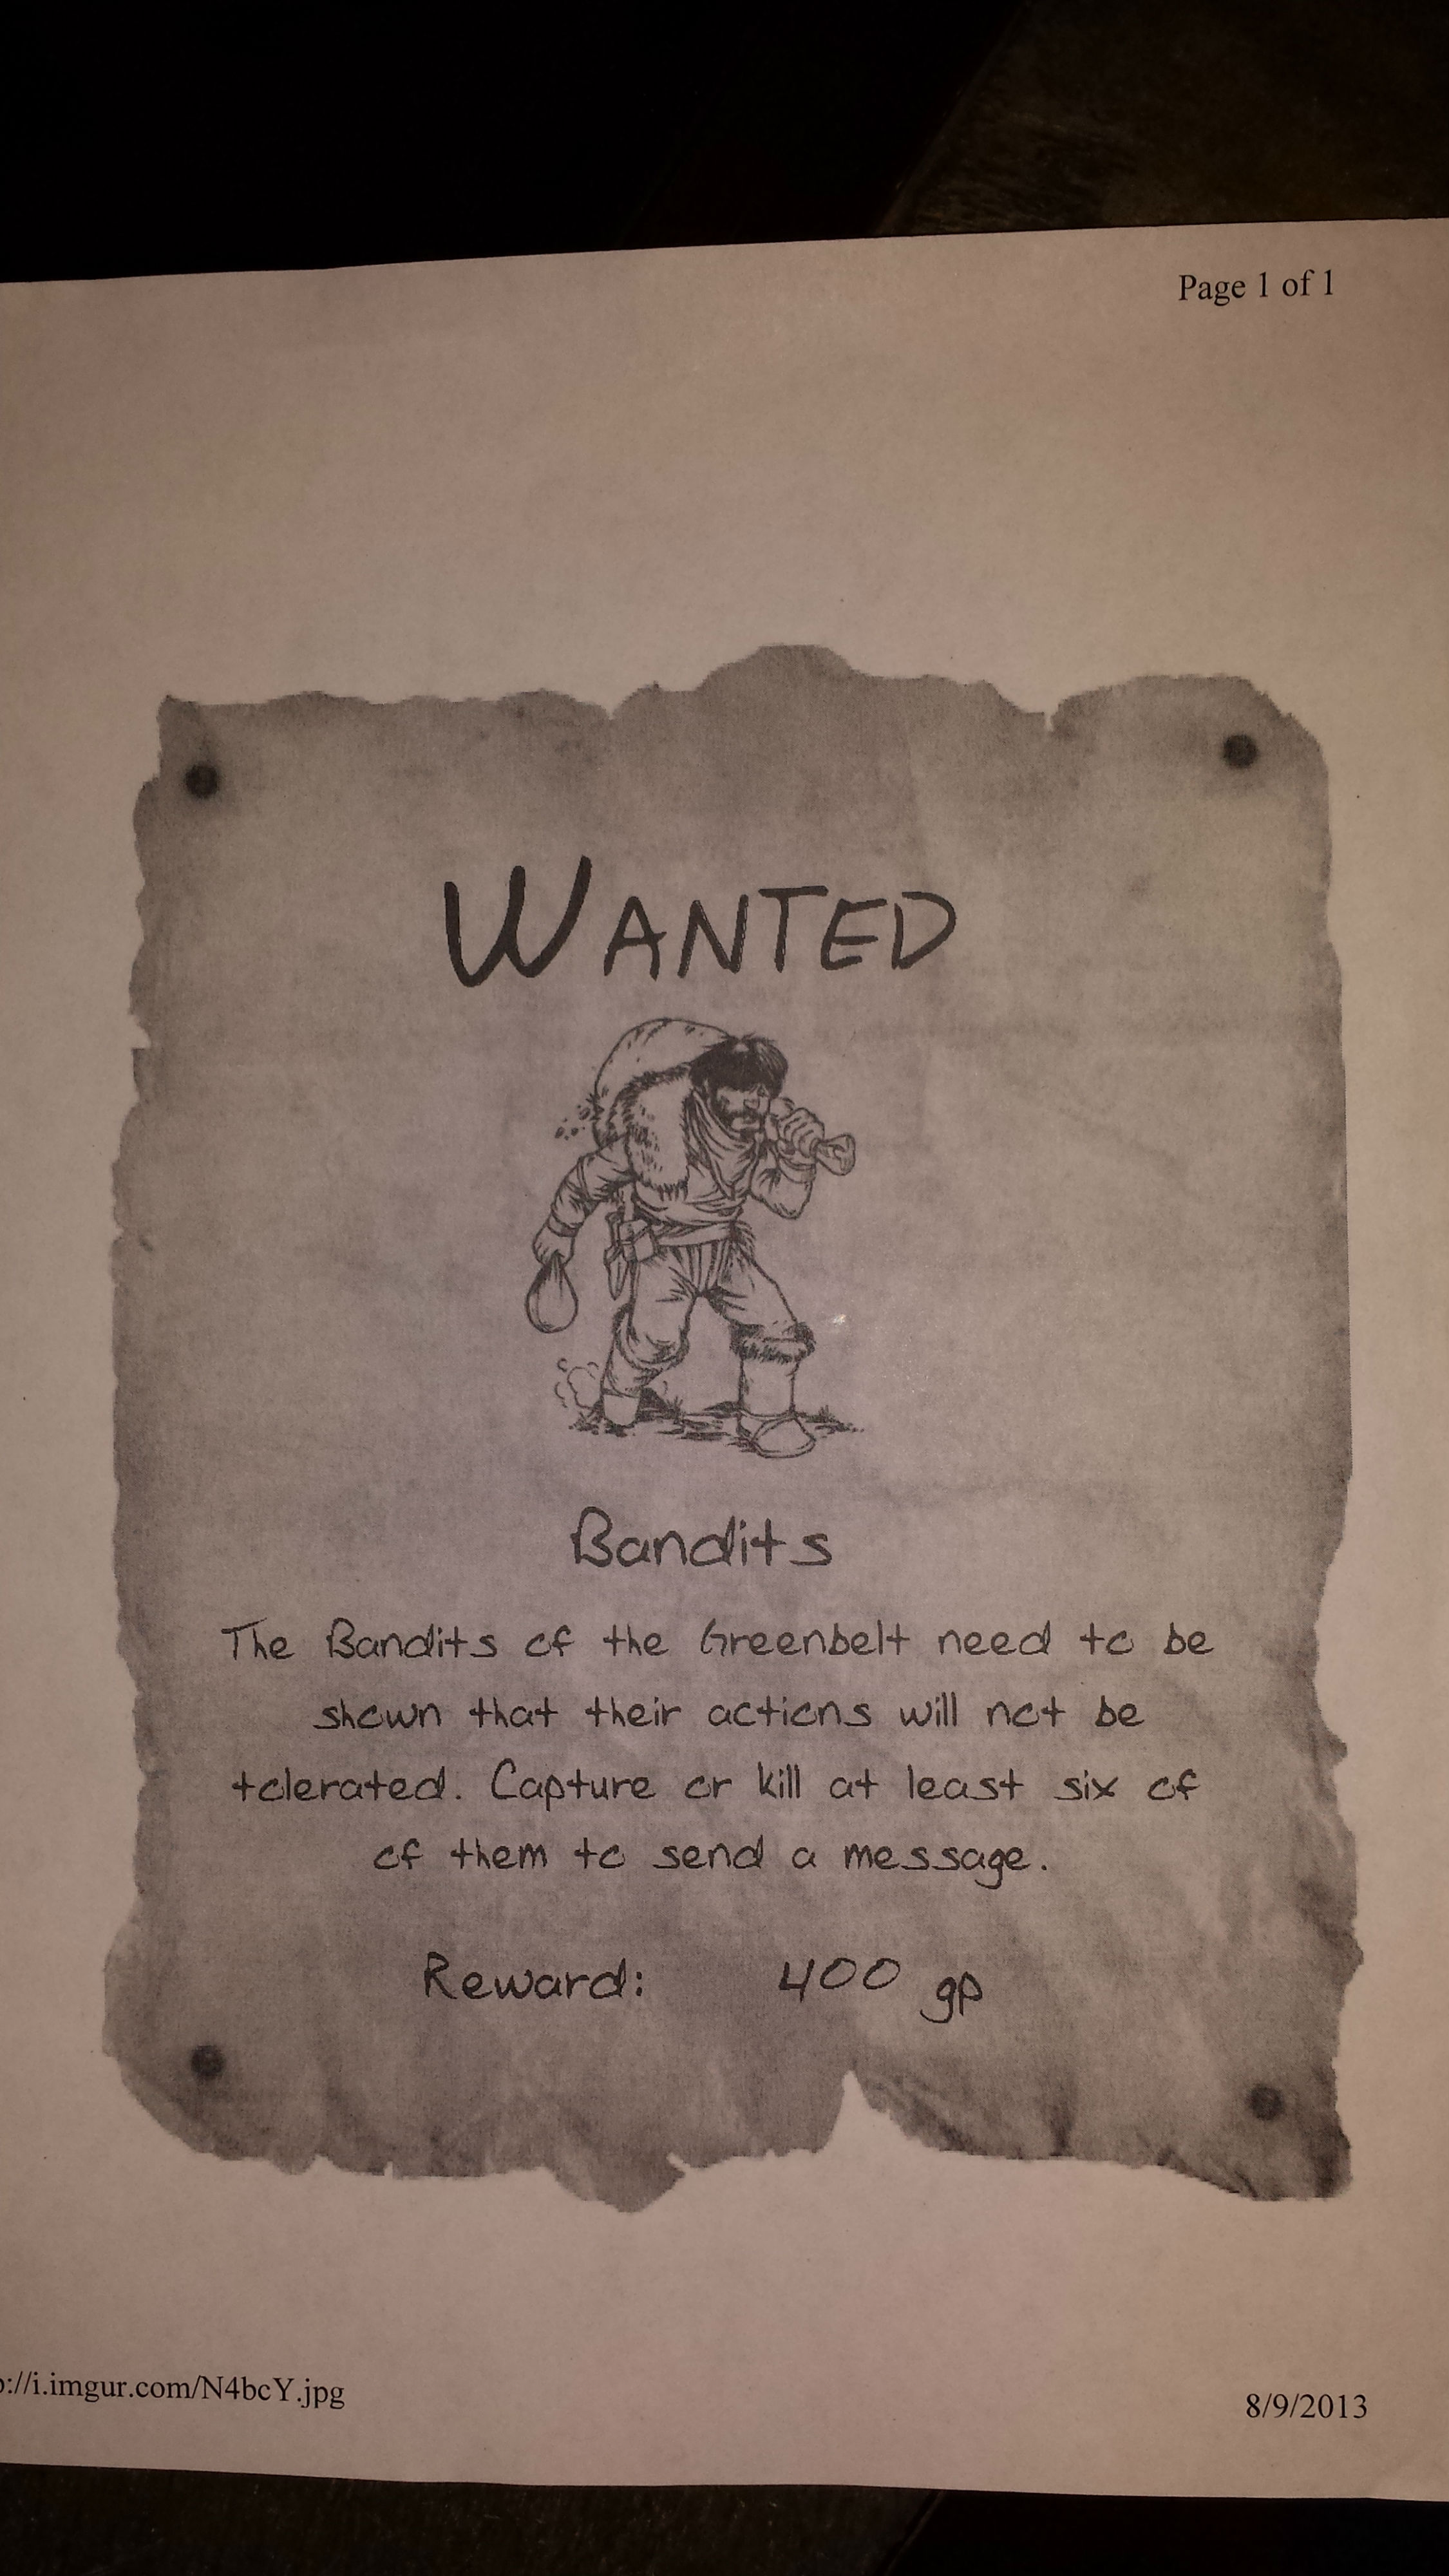 Page 1 of 1
WANTED
Bandits
The Bandits of the Greenbelt need to be
shown that their actions will not be
tolerated. Capture or kill at least six of
of them to send a message.
Reward: 400 gp
://i.imgur.com/N4bcY.jpg
8/9/2013